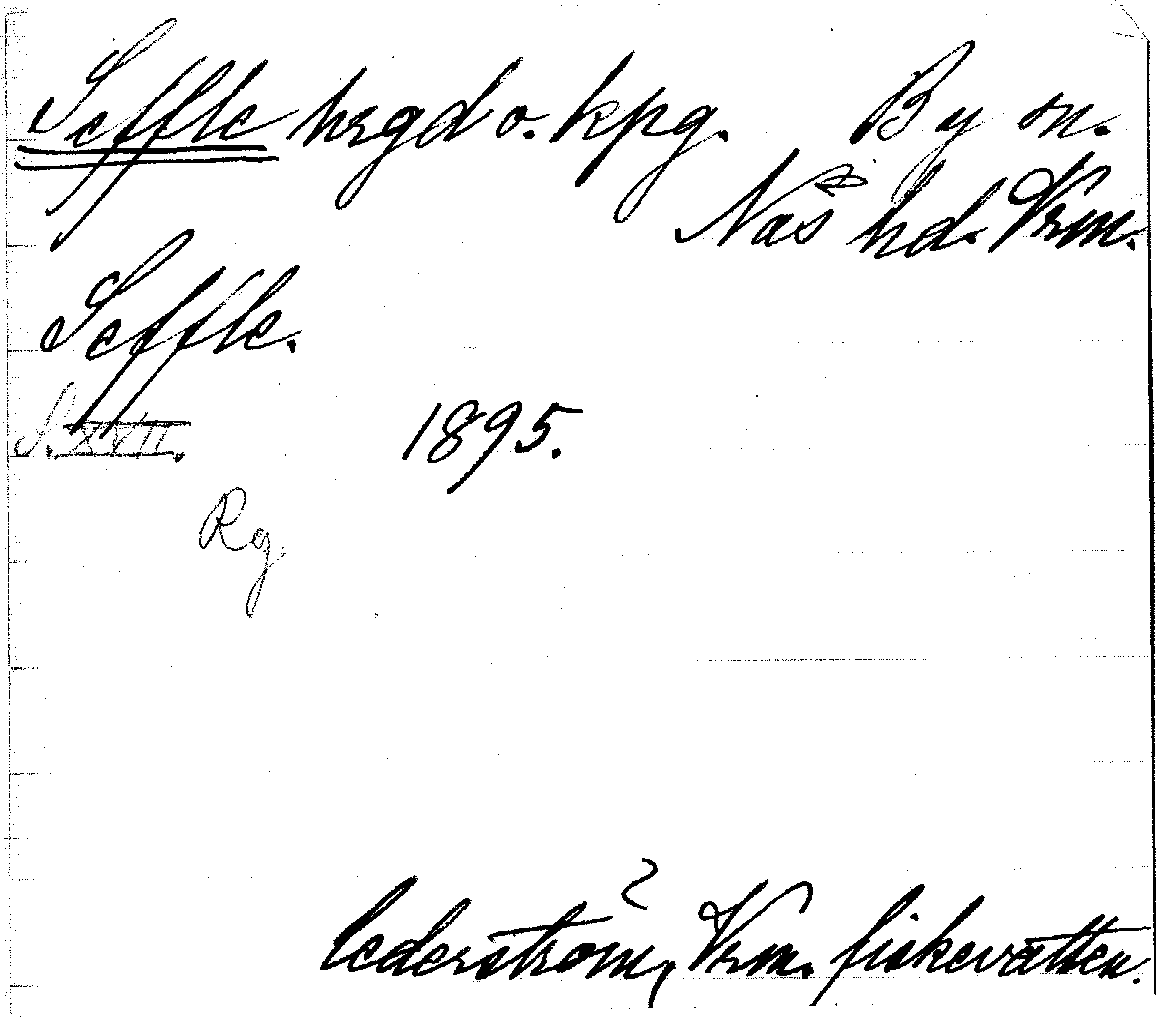 Seffle hrgd o. kpg. By sn.
Näs hd. Vrm.
Seffle.
S. XVII. 1895.
Rg.
Cederström, Vrm. fiskevatten.